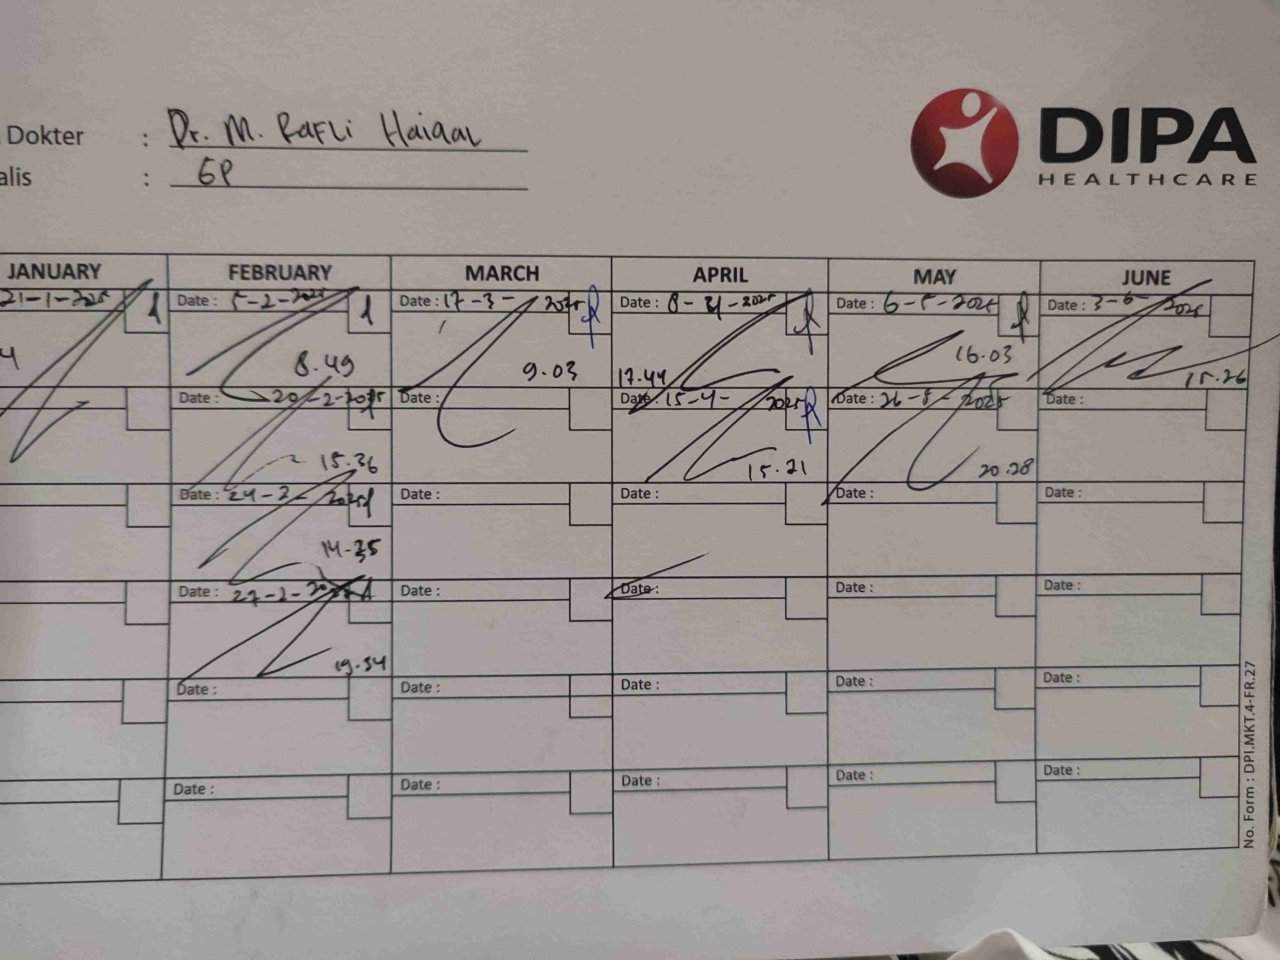 Dokter : Dr. M. Rafli Haiqal
alis : GP
DIPA
HEALTHCARE
JANUARY FEBRUARY MARCH APRIL MAY JUNE
21-1-2025 Date : 5-2-2025 Date : 17-3-2025 Date : 8-4-2025 Date : 6-5-2025 Date : 3-6-2025
4 8.49 9.03 17.44 16.03 15.26
Date : 20-2-2025 Date : Date : 15-4-2025 Date : 26-5-2025 Date :
15.36 15.21 20.28
Date : 24-2-2025 Date : Date : Date : Date :
14.35
Date : 27-2- Date : Date : Date : Date :
19.34
Date : Date : Date : Date : Date :
Date : Date : Date : Date : Date :
No. Form : DPI.MKT.4-FR.27